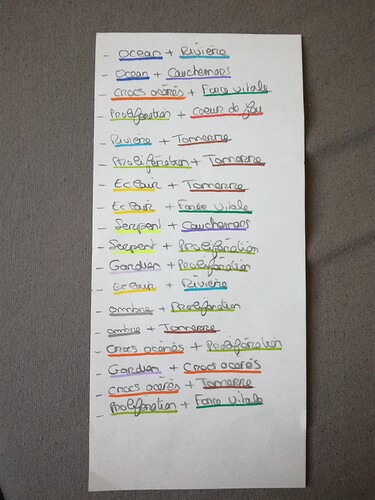 - Ocean + Rivière
- Ocean + Cauchemars
- Crocs acérés + Force vitale
Prolifération + Coeur de feu
- Rivière + Tonnerre
- Prolifération + Tonnerre
- Eclair + Tonnerre
- Eclair + Force vitale
- Serpent + Cauchemars
- Serpent + Prolifération
- Gardien + Prolifération
- Eclair + Rivière
- ombre + Prolifération
- ombre + Tonnerre
- Crocs acérés + Prolifération
- Gardien + Crocs acérés
- Crocs acérés + Tonnerre
- Prolifération + Force vitale